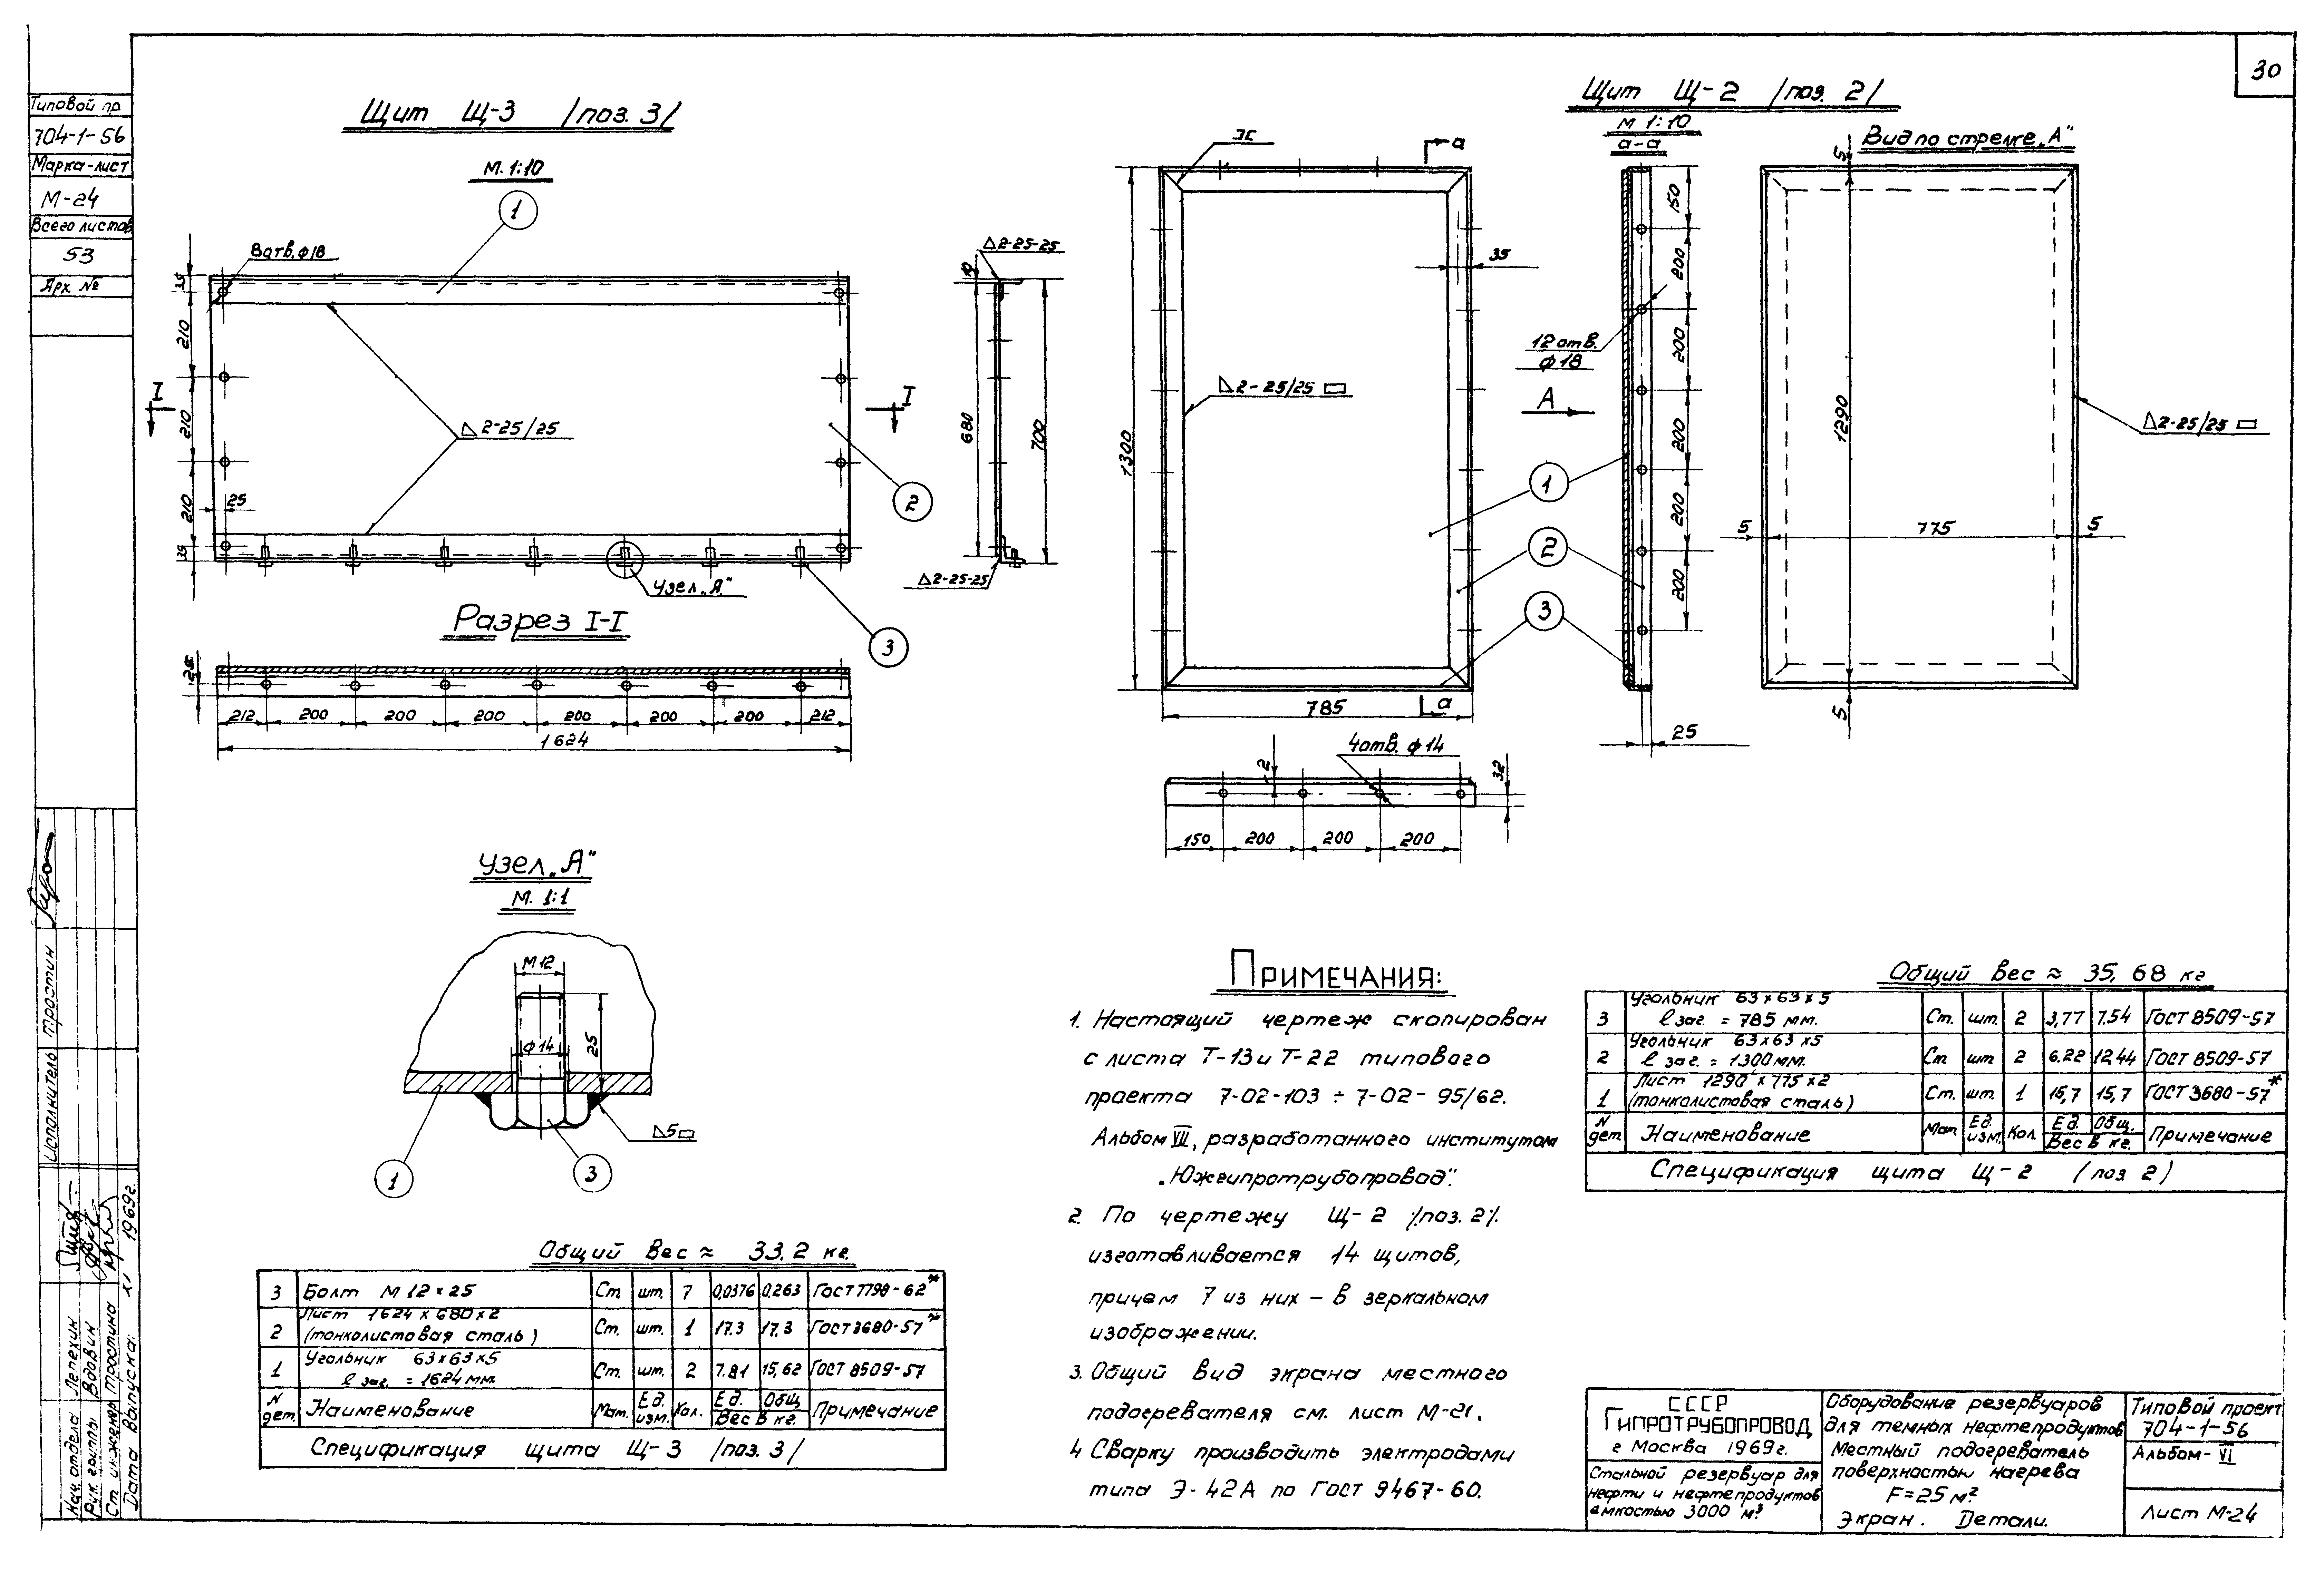 30
Типовой пр.
704-1-56
Марка-лист
М-24
Всего листов
53
Арх №
Щит Щ-3 /поз. 3/
М. 1:10
1
8 отв. ф18
35
210
210
210
35
25
I
I
△2-25/25
2
Узел „А"
3
△2-25-25
10
680
700
△2-25-25
Разрез I-I
212
200
200
200
200
200
200
212
1624
Узел „А"
М. 1:1
М12
ф14
25
△5
1
3
Щит Щ-2 /поз. 2/
М 1:10
а-а
Вид по стрелке „А"
а
35
1300
△2-25/25
785
а
12 отв.
ф18
А
1
2
3
150
200
200
200
200
200
25
5
1290
5
775
5
5
△2-25/25
4 отв. ф14
2
32
150
200
200
200
Примечания:
1. Настоящий чертеж скопирован
с листа Т-13 и Т-22 типового
проекта 7-02-103 ÷ 7-02-95/62.
Альбом VII, разработанного институтом
„Южгипротрубопровод".
2. По чертежу Щ-2 /поз. 2/.
изготавливается 14 щитов,
причем 7 из них – в зеркальном
изображении.
3. Общий вид экрана местного
подогревателя см. лист М-21.
4 Сварку производить электродами
типа Э-42А по ГОСТ 9467-60.
Общий вес ≈ 33,2 кг.
3 Болт М12×25 Ст. шт. 7 0,0376 0,263 ГОСТ 7798-62*
Лист 1624×680×2
2 (тонколистовая сталь) Ст. шт. 1 17.3 17,3 ГОСТ 3680-57*
Угольник 63×63×5
1 l заг. = 1624 мм. Ст. шт. 2 7.81 15,62 ГОСТ 8509-57
N дет. Наименование Мат. Ед. изм. Кол. Ед. Общ. Вес в кг. Примечание
Спецификация щита Щ-3 /поз. 3/
Общий вес ≈ 35,68 кг
Угольник 63×63×5
3 l заг. = 785 мм. Ст. шт. 2 3,77 7.54 ГОСТ 8509-57
Угольник 63×63×5
2 l заг. = 1300 мм. Ст шт 2 6.22 12,44 ГОСТ 8509-57
Лист 1290×775×2
1 (тонколистовая сталь) Ст. шт. 1 15,7 15,7 ГОСТ 3680-57*
N дет. Наименование Мат. Ед. изм. Кол. Ед. Общ. Вес в кг. Примечание
Спецификация щита Щ-2 (поз 2)
СССР
ГИПРОТРУБОПРОВОД
г Москва 1969г.
Стальной резервуар для
нефти и нефтепродуктов
емкостью 3000 м³
Оборудование резервуаров
для темных нефтепродуктов
Местный подогреватель
поверхностью нагрева
F=25 м².
Экран. Детали.
Типовой проект
704-1-56
Альбом-VI
Лист М-24
Исполнитель Тростин
Нач. отдела Лепехин
Рук. группы Вдовин
Ст инженер Тростина
Дата выпуска: XI 1969г.